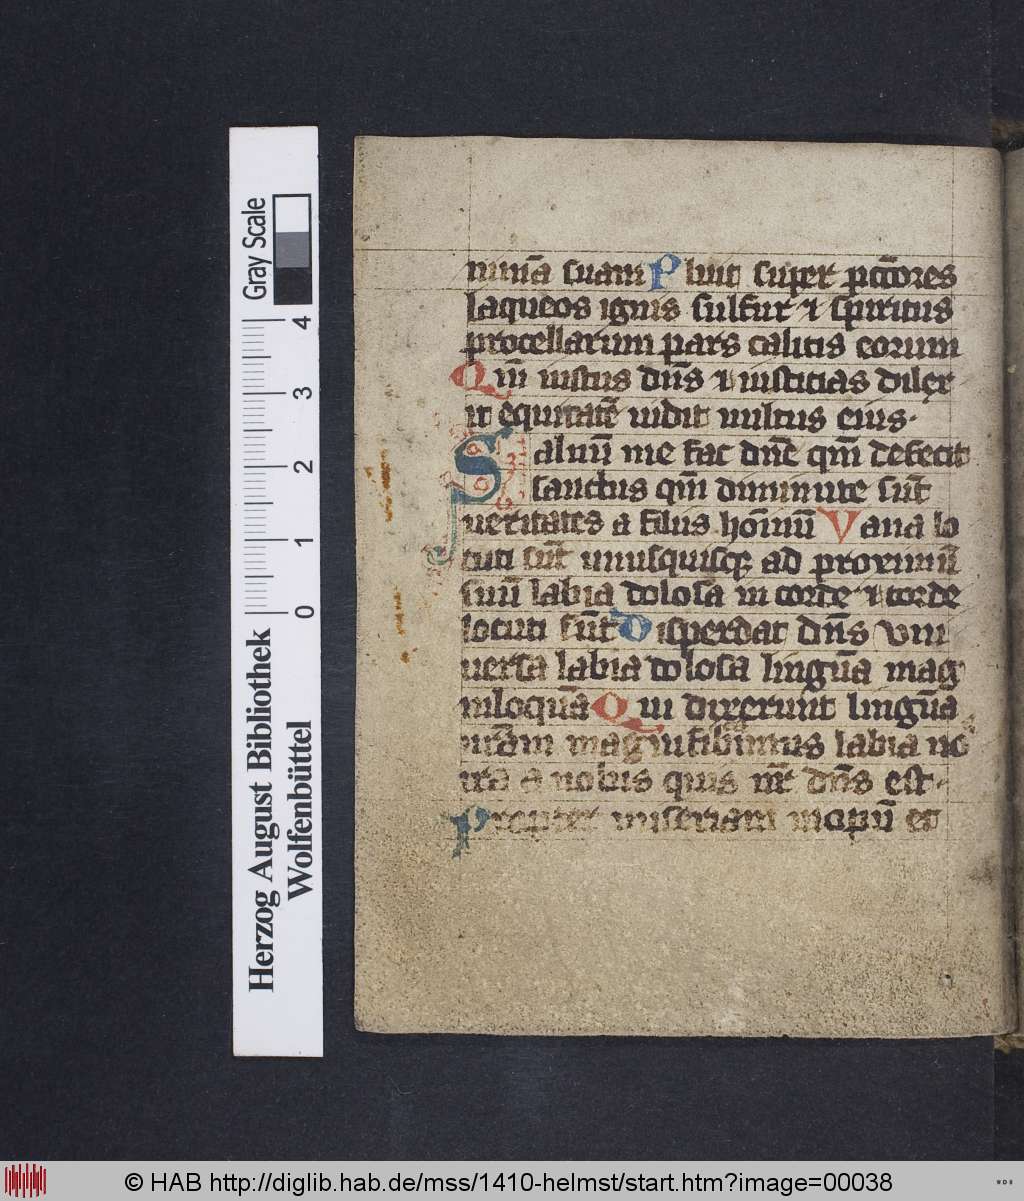 minā suam Pluit super pctōres
laqueos ignis sulfur ⁊ spiritus
procellarum pars calicis eorum
Qm̄ iustus dn̄s ⁊ iusticias dilex
it equitatē uidit uultus eius.
Saluū me fac dn̄e qm̄ defecit
sanctus qm̄ diminute sūt
ueritates a filiis hoīnū Vana lo
cuti sūt unusquisq; ad proximū
suū labia dolosa in corde ⁊ corde
locuti sūt Disperdat dn̄s vni
uersa labia dolosa linguā mag
niloquā Qui dixerunt linguā
nrām magnificabimus labia no
stra a nobis quis nr̄ dn̄s est.
Propter miseriam inopū et
Gray Scale
0 1 2 3 4
Herzog August Bibliothek
Wolfenbüttel
© HAB http://diglib.hab.de/mss/1410-helmst/start.htm?image=00038